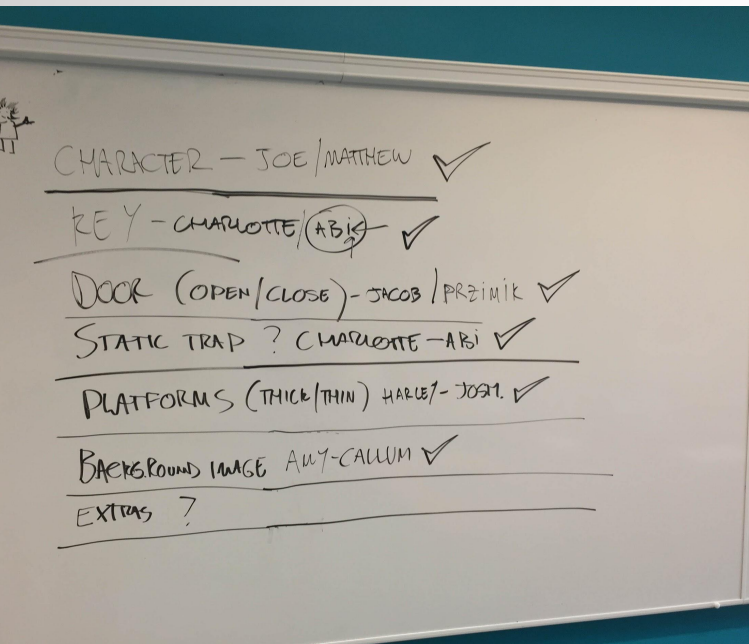 CHARACTER - JOE/MATTHEW ✓
KEY - CHARLOTTE/ABi ✓
DOOR (OPEN/CLOSE) - JACOB/PRZiMiK ✓
STATIC TRAP ? CHARLOTTE - ABi ✓
PLATFORMS (THICK/THIN) HARLEY - JOSH. ✓
BACKGROUND IMAGE AMY - CALLUM ✓
EXTRAS ?